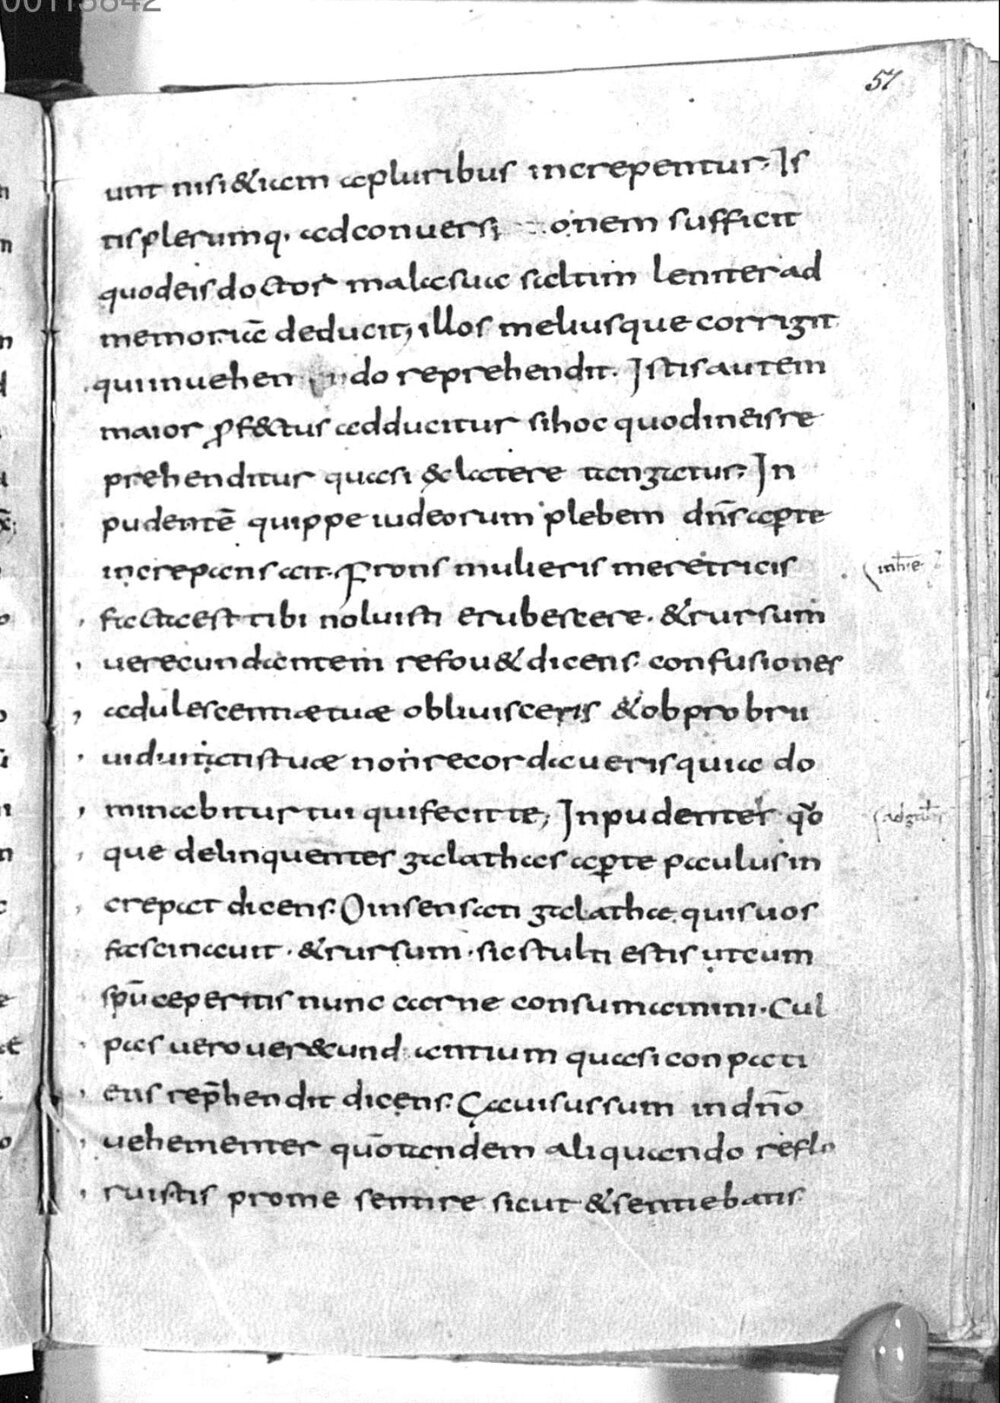 00113842
57
unt nisi & iiam a pluribus increpentur. Is
tis plerumq. ad conuersi onem sufficit
quod eis doctor mala sua saltim leniter ad
memoriā deducit, illos melius que corrigit
qui inuehen do reprehendit. Istis autem
maior ꝓfectus adducitur si hoc quod in eis re
prehenditur quasi & latere tangatur; In
pudentē quippe iudeorum plebem dn̄s aperte
increpans ait. Frons mulieris meretricis
facta est tibi noluisti erubescere. & rursum
uerecundantem refouet dicens confusiones
adulescentiæ tuæ obliuisceris & obprobrii
uiduitatis tuæ non recordaueris quia do
minabitur tui qui fecit te; Inpudenter qǒ
que delinquentes galathas aperte paulus in
crepat dicens. O insensati galathæ quis uos
fascinauit. & rursum. sic stulti estis ut cum
spū ceperitis nunc carne consumamini. Cul
pas uero uerecundantium quasi conpati
ens rep̄hendit dicens. Gauisus sum in dn̄o
uehementer quō tandem aliquando reflo
ruistis pro me sentire sicut & sentiebatis